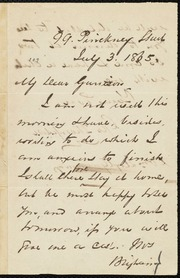 99. Pinckney Street
July 3. 1865.
My dear Garrison
I am not well this
morning & have, besides,
writing to do which I
am anxious to finish.
I shall stay at home,
but be happy to see
you, and arrange about
tomorrow, if you will
give me a call. Mrs